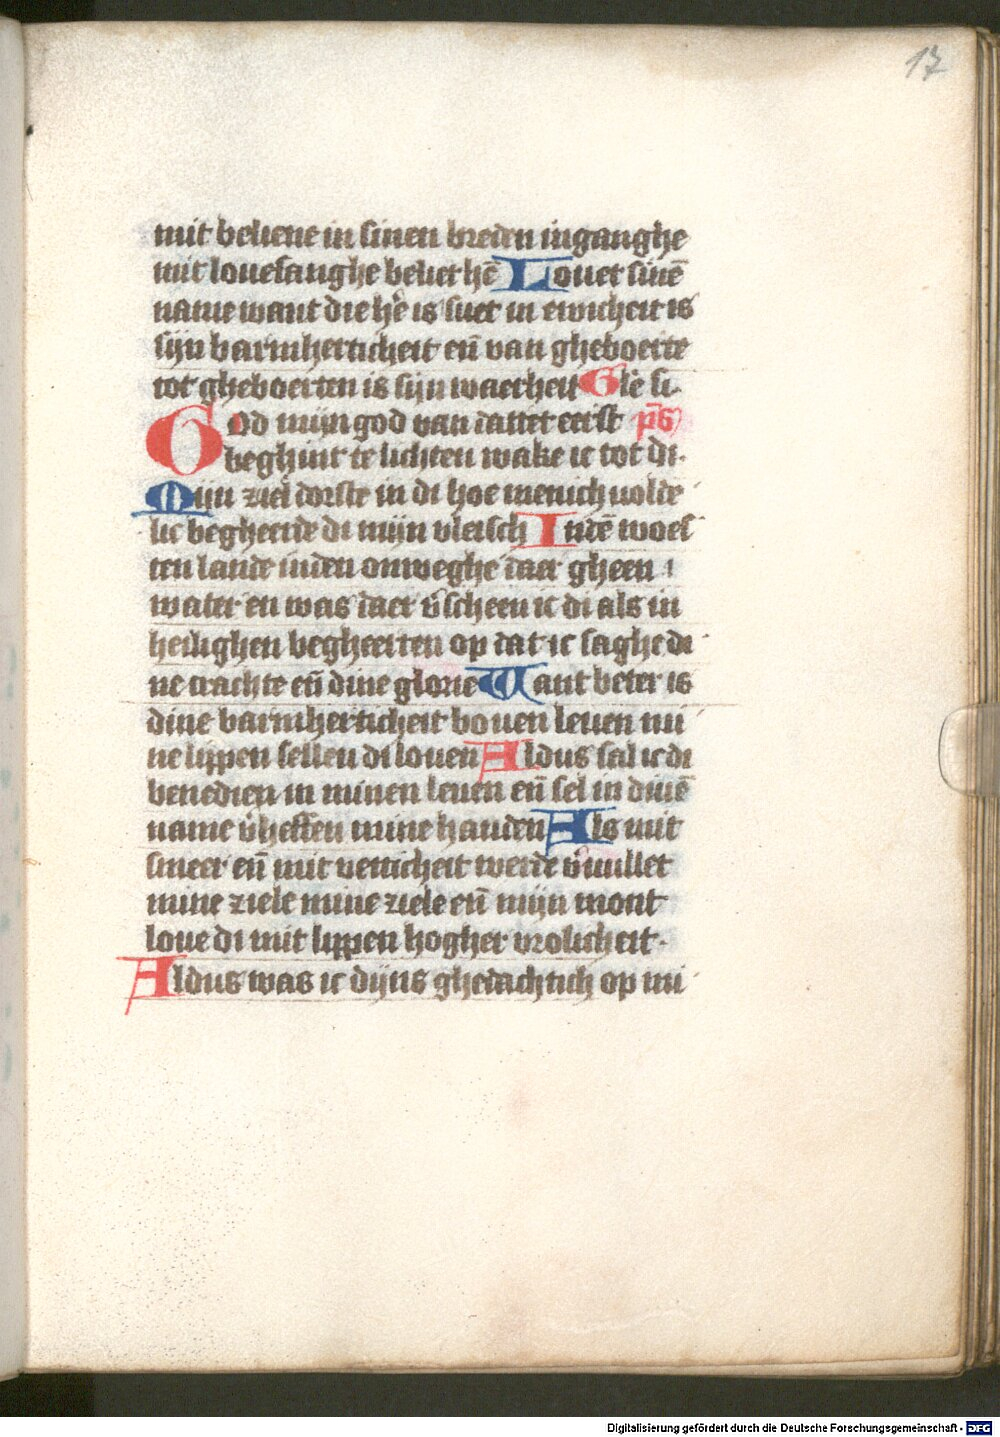 17
mit beliene in sinen vreden inganghe
mit louesanghe beliet hē Louet sinē
name want die he is suet in ewicheit is
sijn barmherticheit eñ van gheboerte
tot gheboerten is sijn waerheit Gle si.
God mijn god van dattet eerst ps
beghint te lichten wake ic tot di.
Mijn ziel dorste in di hoe menichuolde
lic begheerde di mijn vleisch In dē woes
ten lande inden onweghe daer gheen
water en was daer v̄scheen ic di als in
heilighen begheerten op dat ic saghe di
ne crachte eñ dine glorie Want beter is
dine barmherticheit bouen leuen mi
ne lippen sellen di louen Aldus sal ic di
benedien in minen leuen eñ sel in dinē
name v̄heffen mine handen Als mit
smeer eñ mit vetticheit werde v̄uullet
mine ziele mine ziele eñ mijn mont
loue di mit lippen hogher vrolicheit.
Aldus was ic dijns ghedachtich op mi
Digitalisierung gefördert durch die Deutsche Forschungsgemeinschaft - DFG